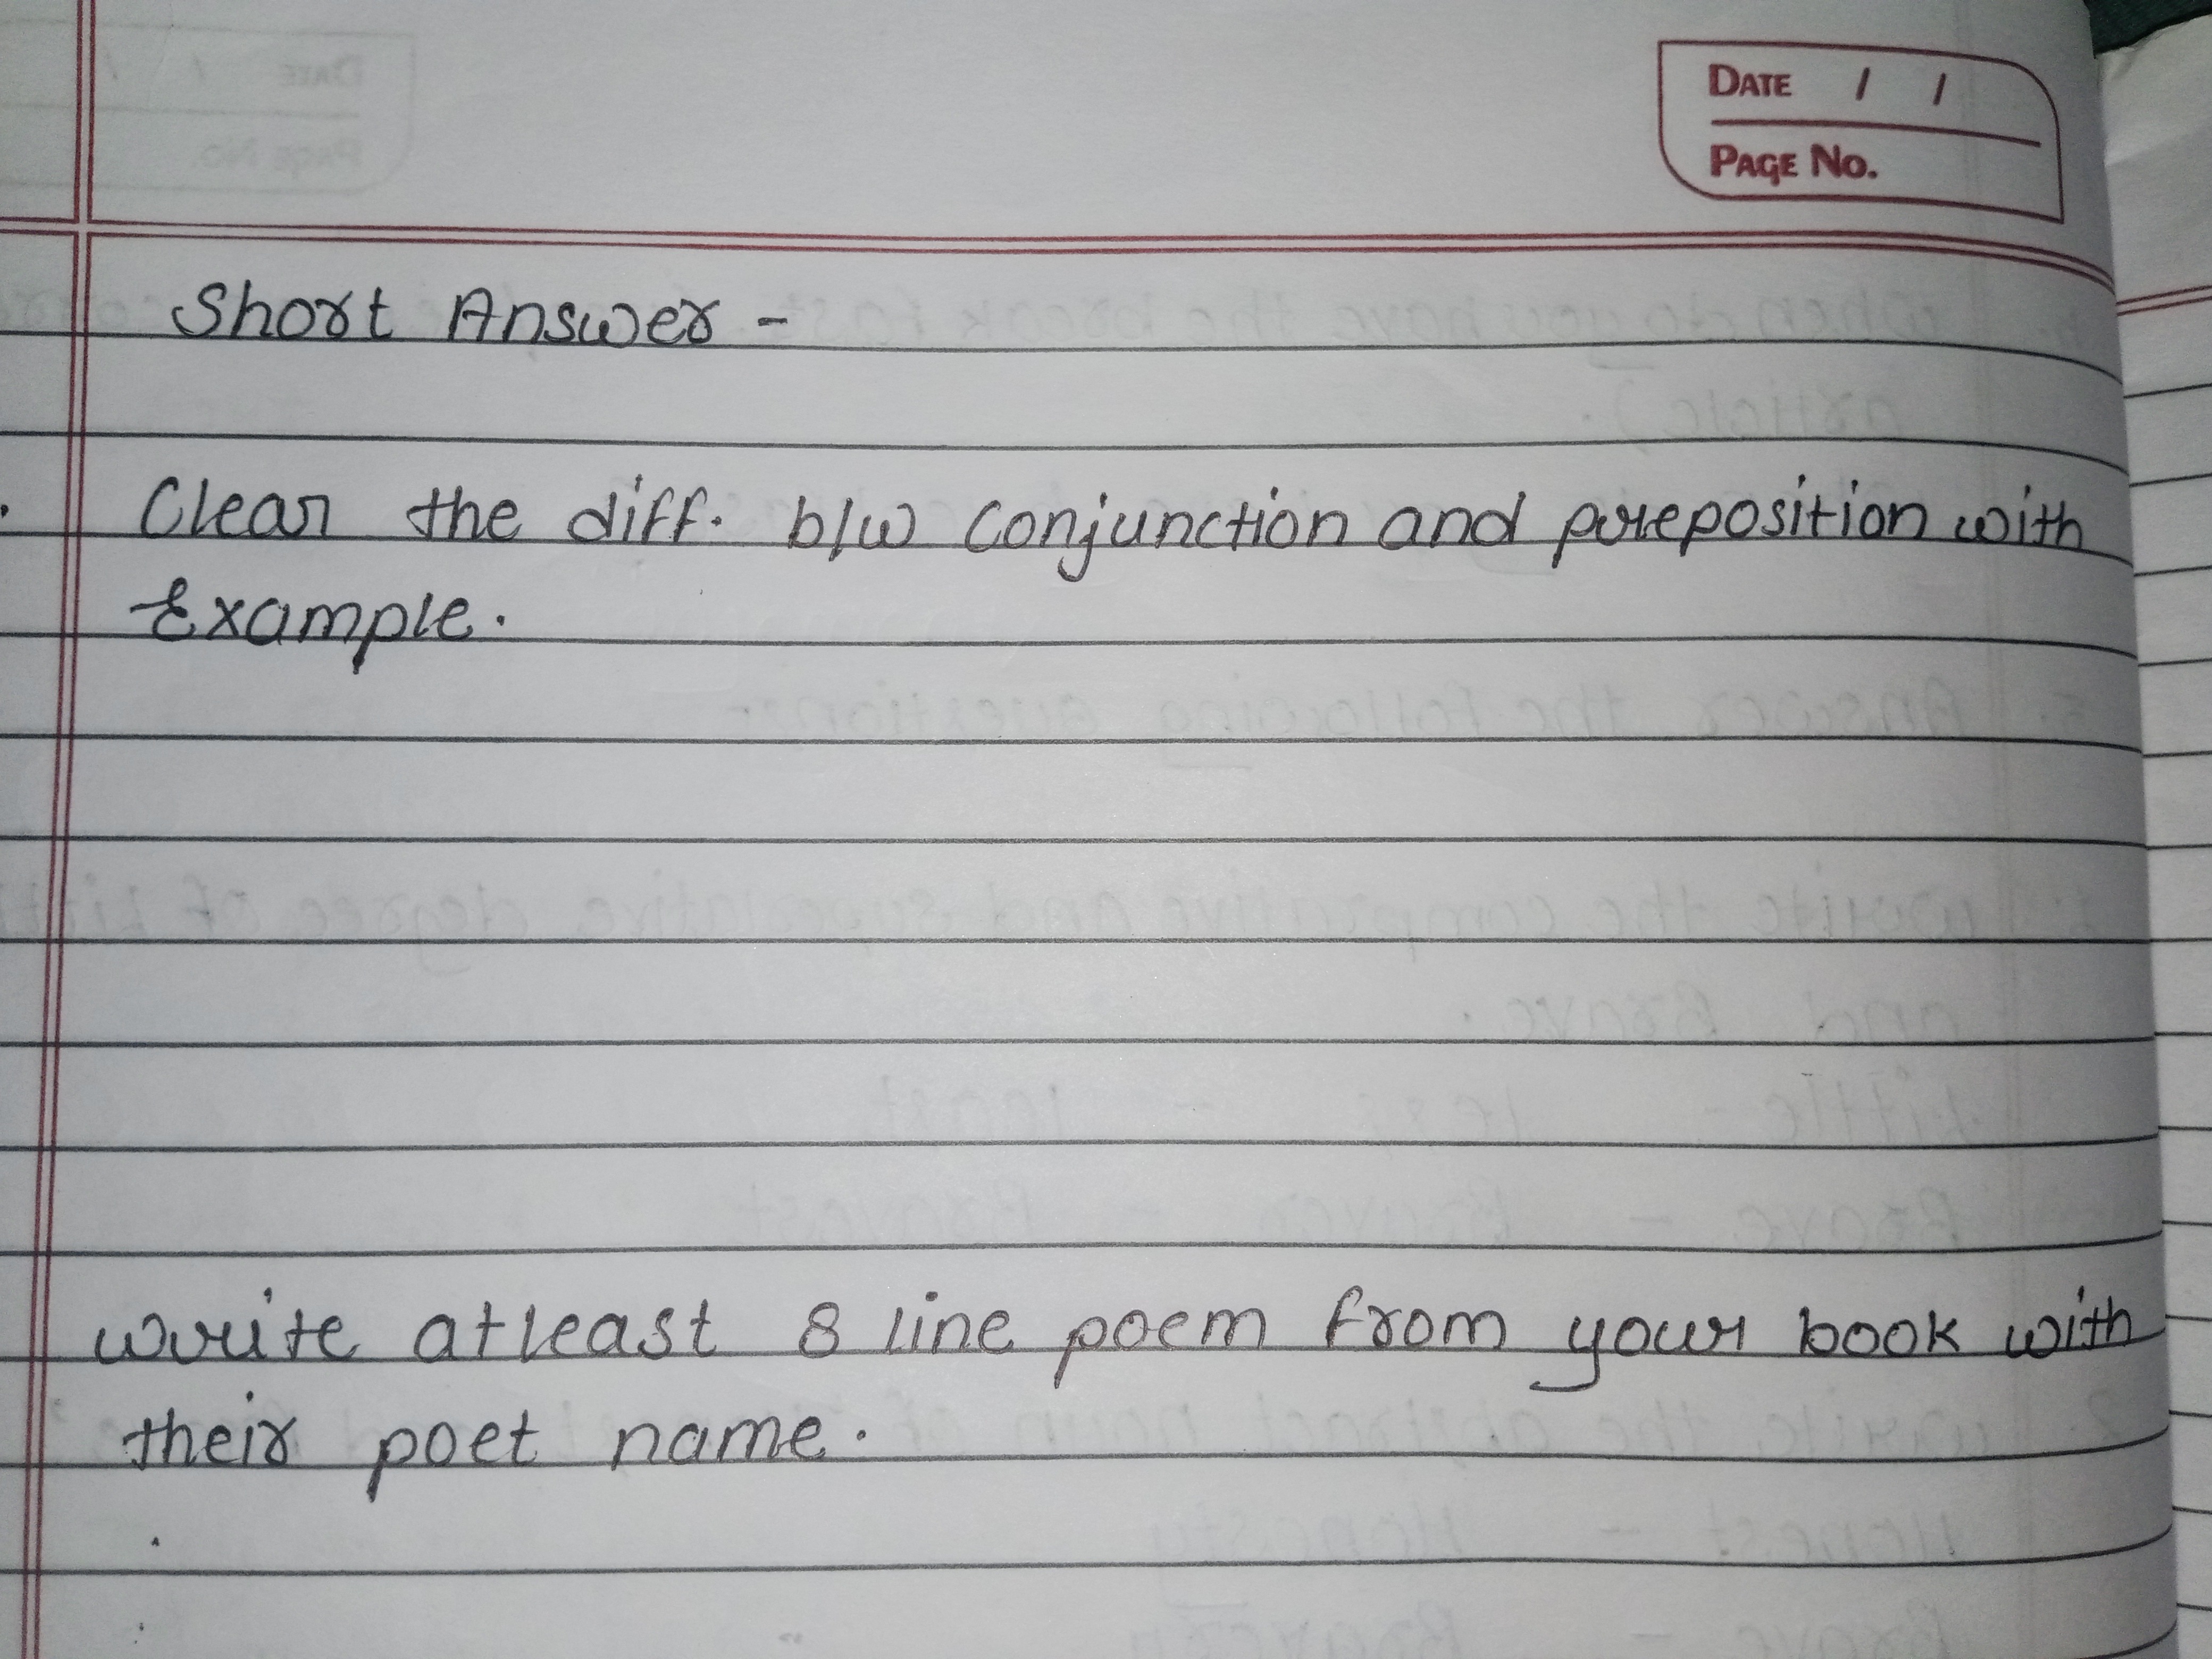 DATE / /
PAGE No.
Short Answer -
Clear the diff. b/w conjunction and preposition with
Example.
write atleast 8 line poem from your book with
their poet name.